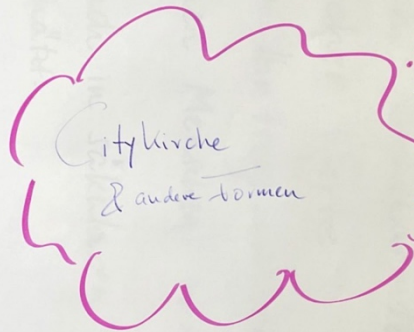 Citykirche
& andere Formen